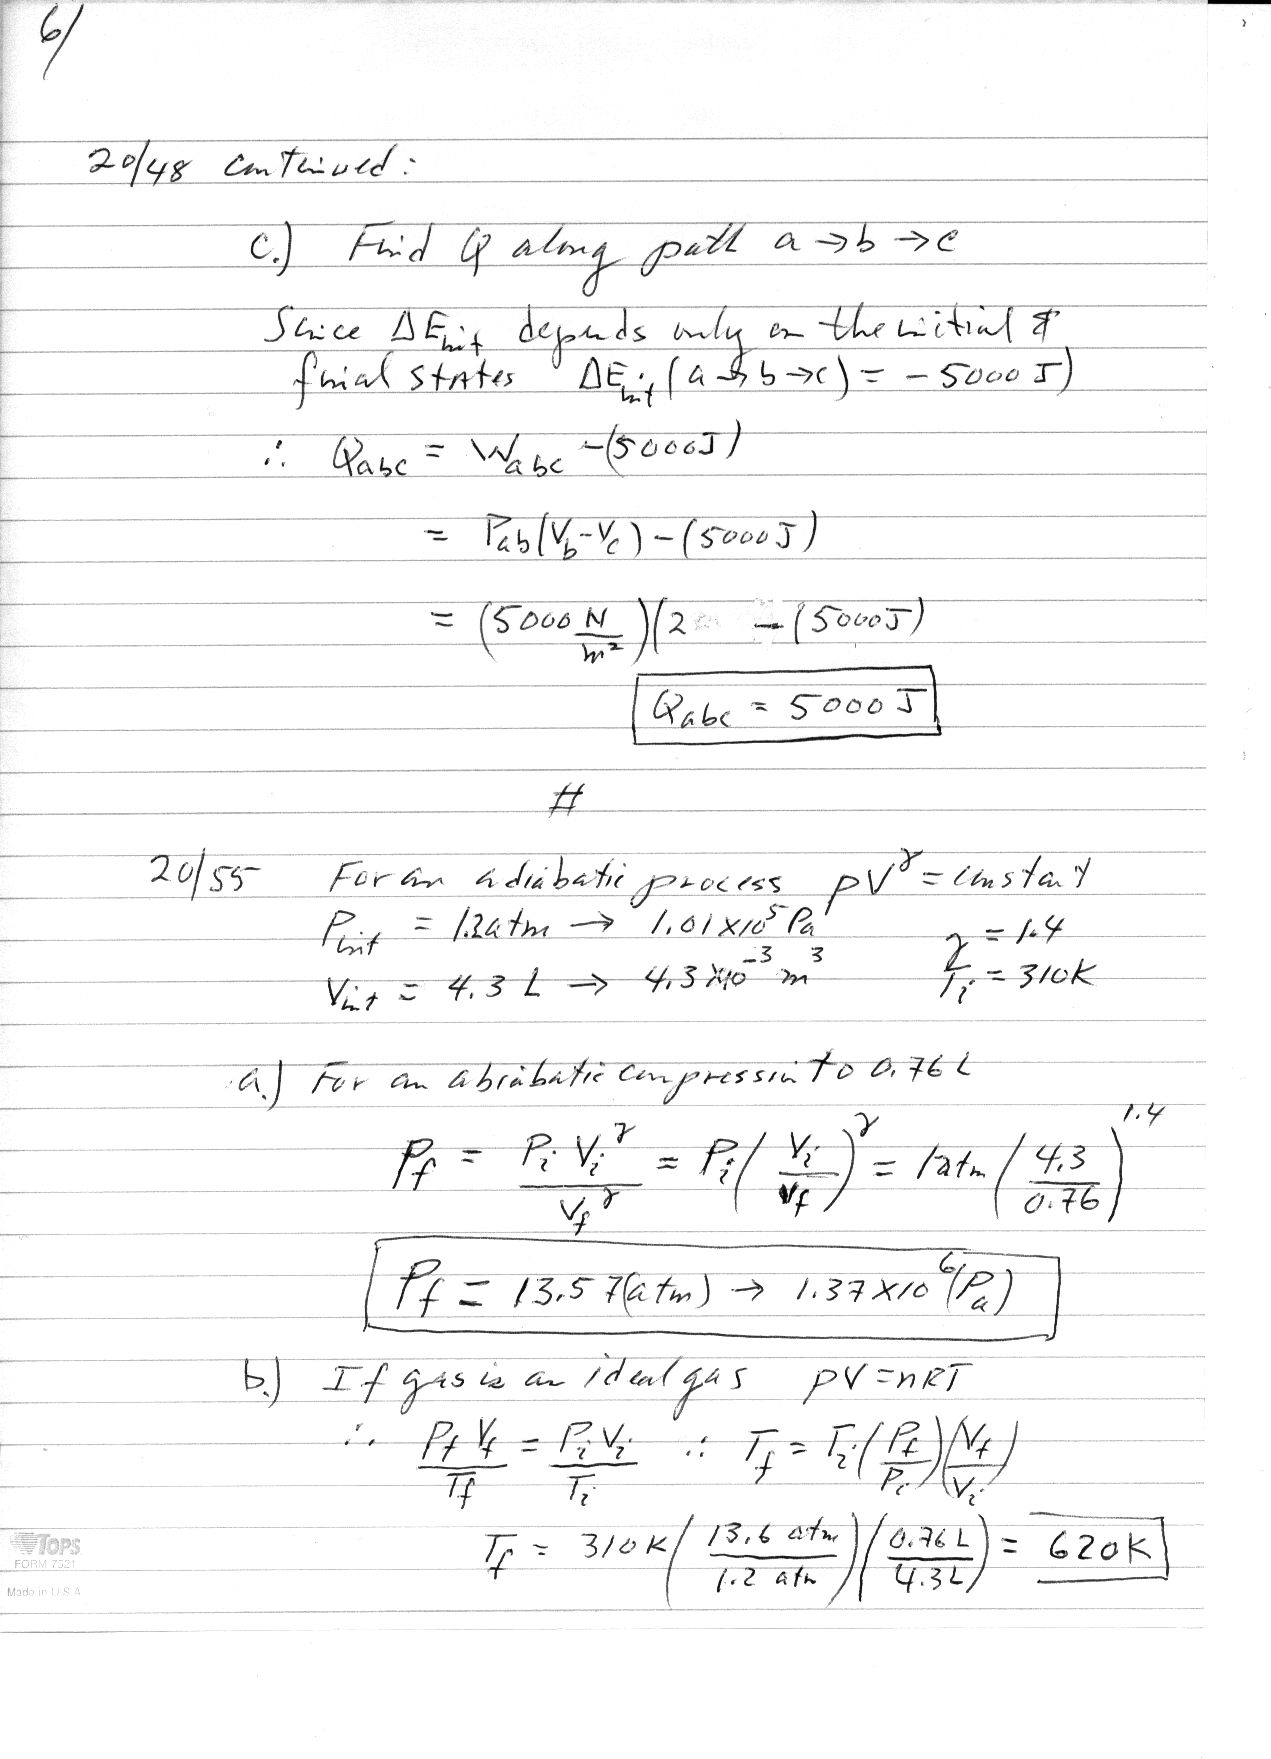 6/
20/48 continued:
c.) Find Q along path a → b → c
Since ΔE_int depends only on the initial &
final states ΔE_int (a → b → c) = - 5000 J)
∴ Q_abc = W_abc - (5000J)
= P_ab (V_b - V_c) - (5000 J)
= (5000 N/m²)(2 - (5000J)
Q_abc = 5000 J
#
20/55 For an adiabatic process pV^γ = constant
P_init = 1.2atm → 1.01x10^5 Pa γ = 1.4
V_int = 4.3 L → 4.3x10^-3 m^3 T_i = 310K
a.) For an abiabatic compression to 0.76 L
P_f = P_i V_i^γ / V_f^γ = P_i (V_i / V_f)^γ = 1atm (4.3 / 0.76)^1.4
P_f = 13.57(atm) → 1.37 x 10^6 (Pa)
b.) If gas is an ideal gas pV = nRT
∴ P_f V_f / T_f = P_i V_i / T_i ∴ T_f = T_i (P_f / P_i)(V_f / V_i)
T_f = 310K (13.6 atm / 1.2 atm)(0.76 L / 4.3L) = 620K
TOPS
FORM 7521
Made in U.S.A